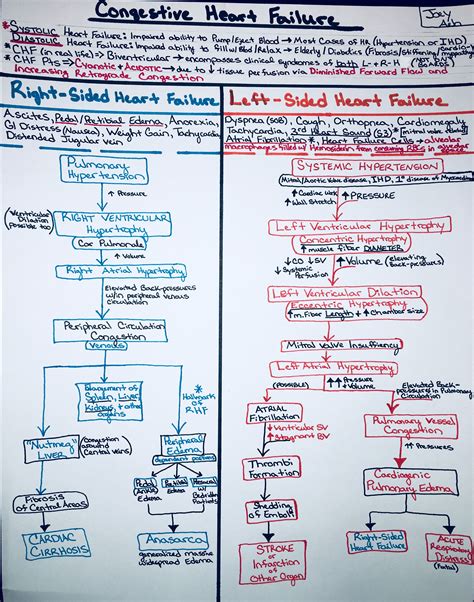 Congestive Heart Failure
Joey
* SYSTOLIC Heart Failure: Impaired ability to Pump/Eject Blood → Most Cases of HR (Hypertension or IHD)
* DIASTOLIC Heart Failure: Impaired ability to fill w/Bld/Relax → Elderly/Diabetics (Fibrosis/stiffening/
* CHF (in real life) => Biventricular → encompasses clinical syndromes of both L- + R-H
* CHF Pts => Cyanotic + Acidotic → due to ↓ tissue perfusion via Diminished Forward Flow and
Increasing Retrograde Congestion
Right-Sided Heart Failure
Ascites, Pedal/Pretibial Edema, Anorexia,
GI Distress (Nausea), Weight Gain, Tachycardia,
Distended Jugular vein
Pulmonary
Hypertension
↑ Pressure
(Ventricular
Dilation
possible too)
RIGHT VENTRICULAR
Hypertrophy
(Cor Pulmonale)
Right Atrial Hypertrophy
Elevated Back-pressures
w/in peripheral venous
circulation
Peripheral Circulation
Congestion
Venous
Engagement of
Spleen, Liver,
Kidneys, + other
organs
* Hallmark
of
RHF
"Nutmeg"
LIVER
(Congestion
around
Central veins)
Peripheral
Edema
dependent portions
Pedal
(Ankles)
Edema
Pretibial
Edema
Presacral
w/ Bedridden
Patients
Fibrosis
of Central Areas
CARDIAC
CIRRHOSIS
Anasarca
generalized massive
widespread Edema
Left-Sided Heart Failure
Dyspnea (SOB), Cough, Orthopnea, Cardiomegaly
Tachycardia, 3rd Heart Sound (S3)
Atrial Fibrillation, * Heart Failure Cells → alveolar
macrophages filled w/ Hemosiderin from consuming RBCs
SYSTEMIC HYPERTENSION
Mital/Aortic Valve disease, IHD, 1° disease of Myocardium
↑ Cardiac Work
↑ Wall Stretch
↑ PRESSURE
Left Ventricular Hypertrophy
Concentric Hypertrophy
↑ muscle fiber DIAMETER
↓ CO ↓ SV
↓ Systemic
Perfusion
↑ Volume
(Elevating
Back-pressures)
Left Ventricular Dilation
Eccentric Hypertrophy
↑ m. Fiber Length + ↑ Chamber size
Mitral Valve Insufficency
Left Atrial Hypertrophy
(POSSIBLE)
↑↑ Pressure
+ Volume
Elevated Back-
pressures in Pulmonary
Circulation
ATRIAL
Fibrillation
↓ Ventricular SV
↑ Stagnant BV
Pulmonary Vessel
Congestion
↑ Pressures
Thrombi
Formation
Cardiogenic
Pulmonary Edema
Shedding
of Emboli
STROKE
or
Infarction of
Other Organ
Right-Sided
Heart Failure
ACUTE
Respiratory
Distress
(Fatal)